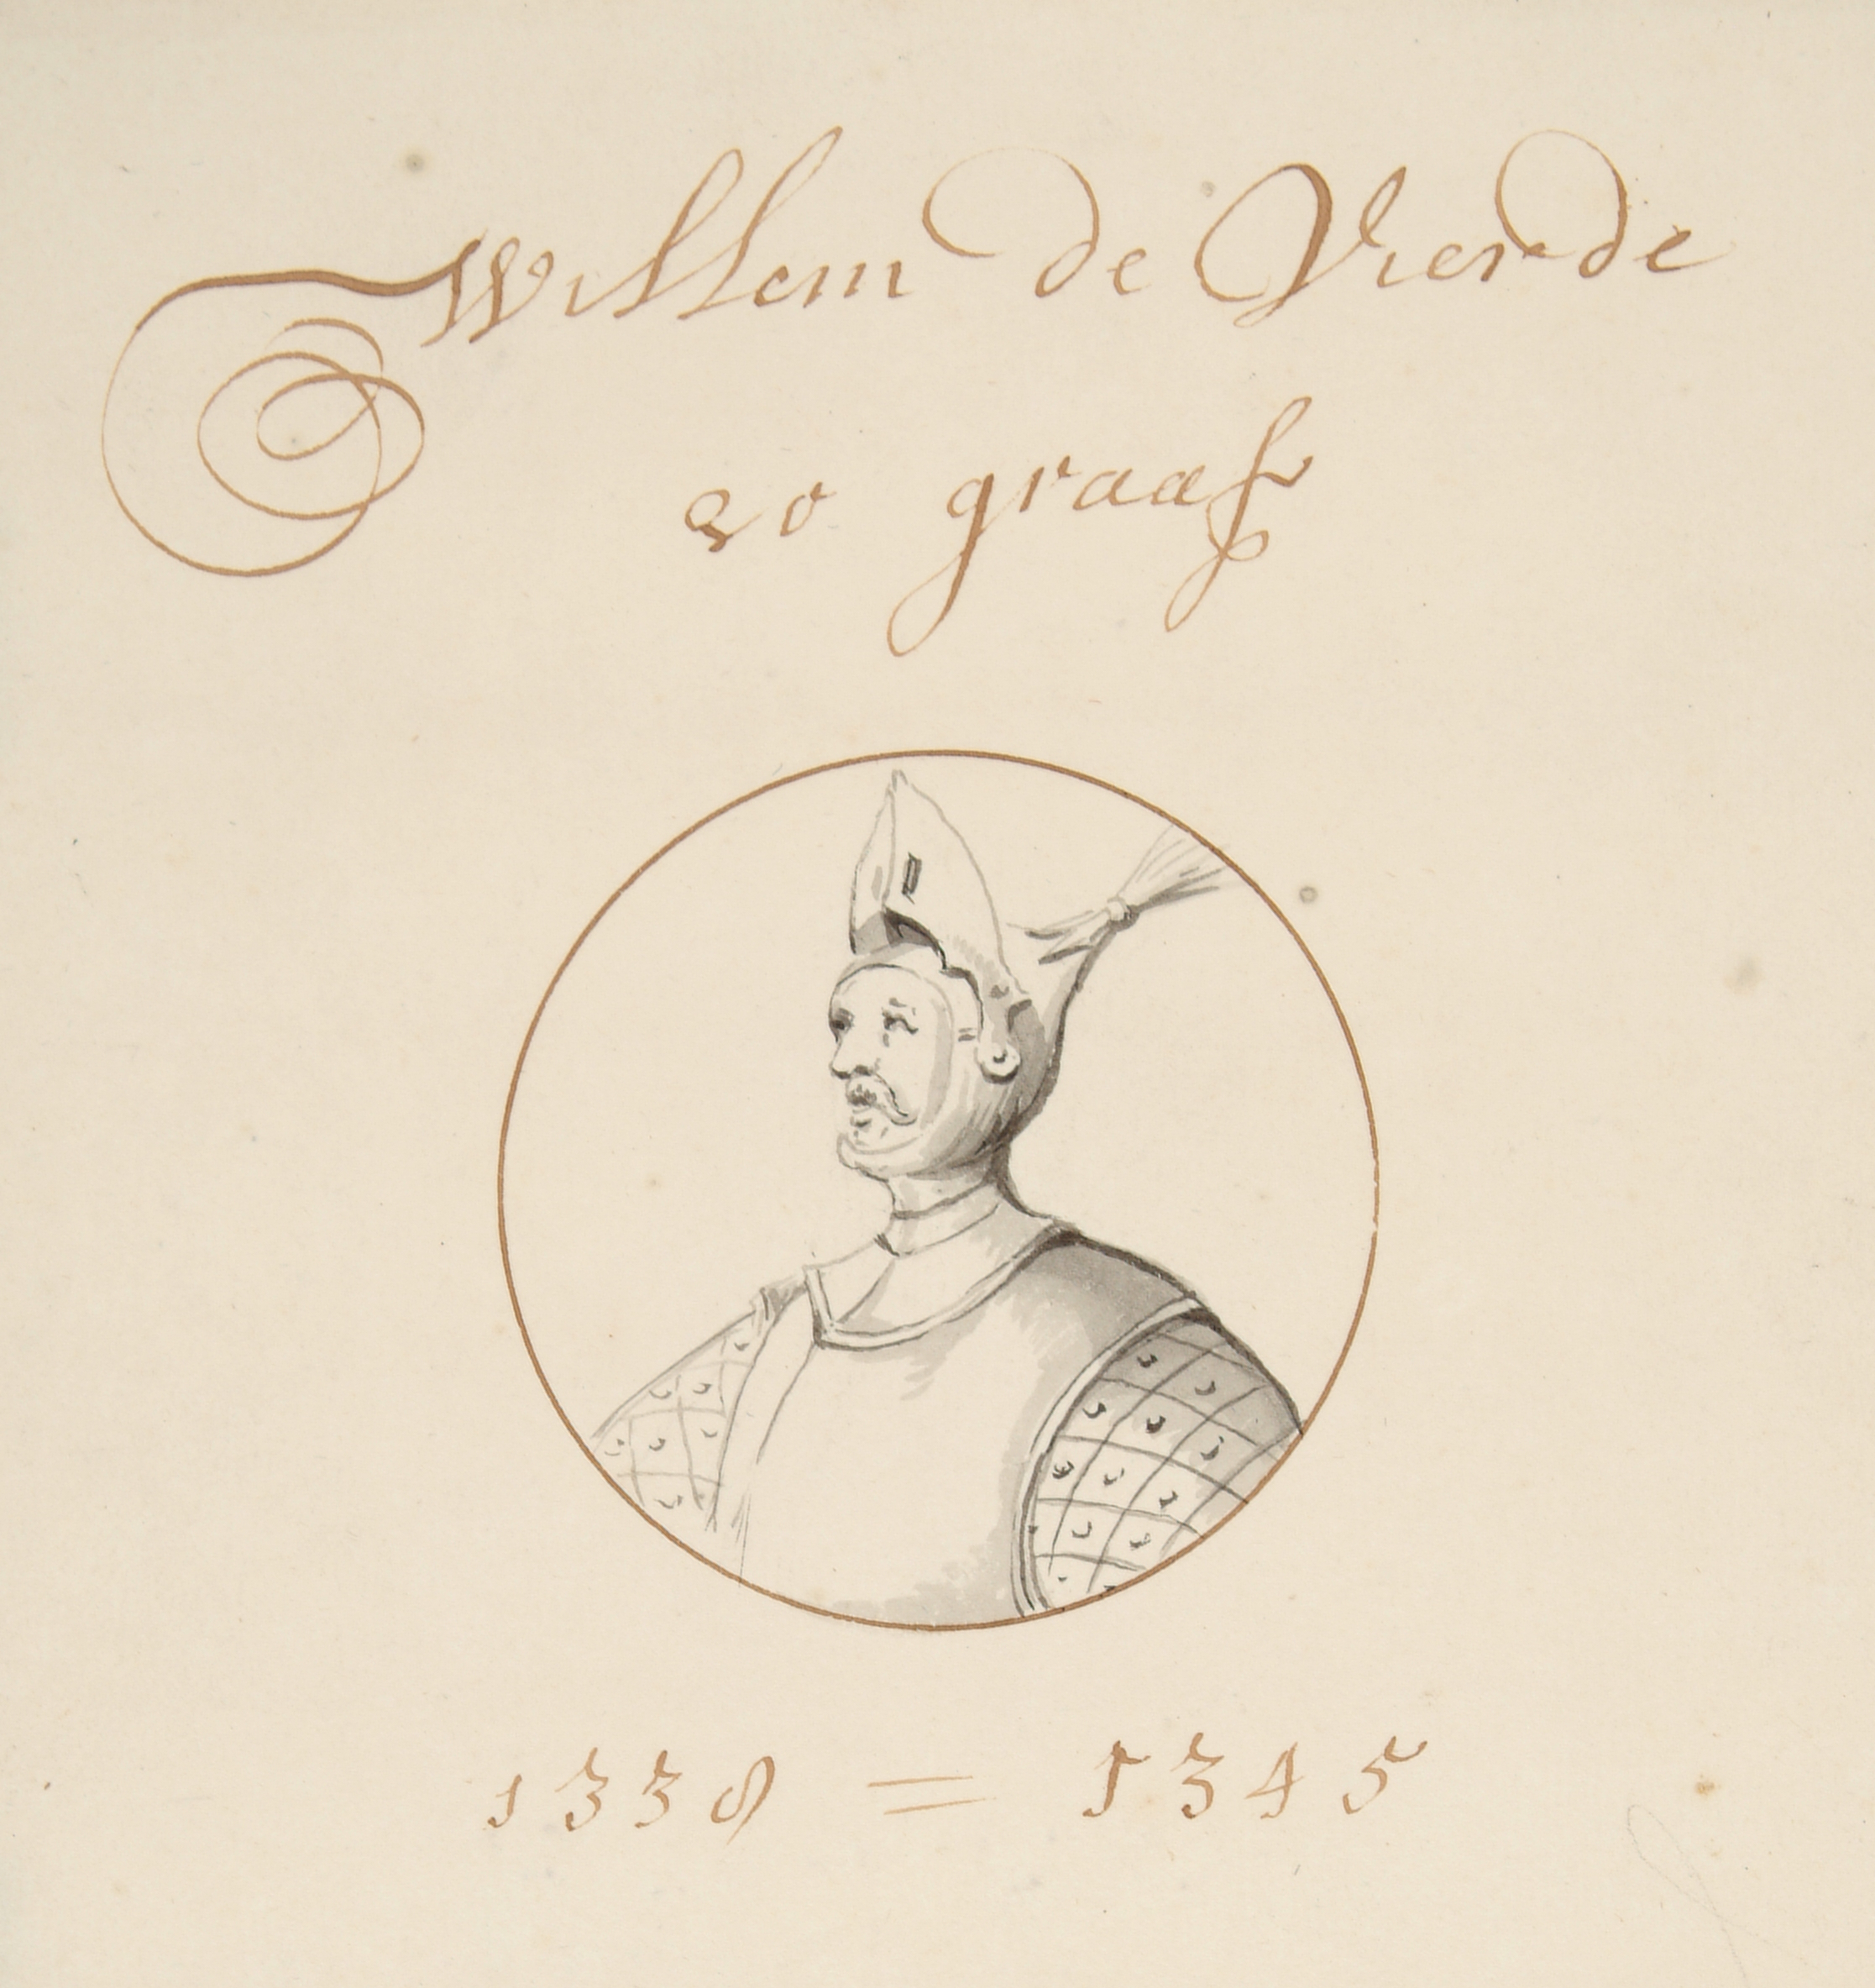 Willem de Vierde
20 graaf
1338 = 1345